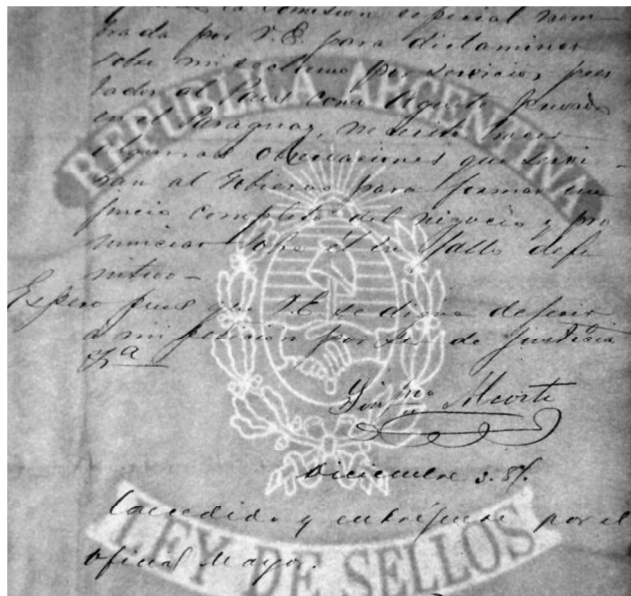 la comision especial nom-
brada por V.E. para dictaminar
sobre mi reclamo por servicios pres
tados al Pais como Agente Privado
en el Paraguay, necesito hacer
algunas observaciones que servi-
ran al Gobierno para formar un
juicio completo del negocio y pro
nunciar sobre él un fallo defi
nitivo-
Espero pues que V.E. se digne deferir
a mi peticion por ser de Justicia
&ª
diciembre 3.
Concedido y entréguese por el
oficial Mayor.
REPUBLICA ARGENTINA
LEY DE SELLOS